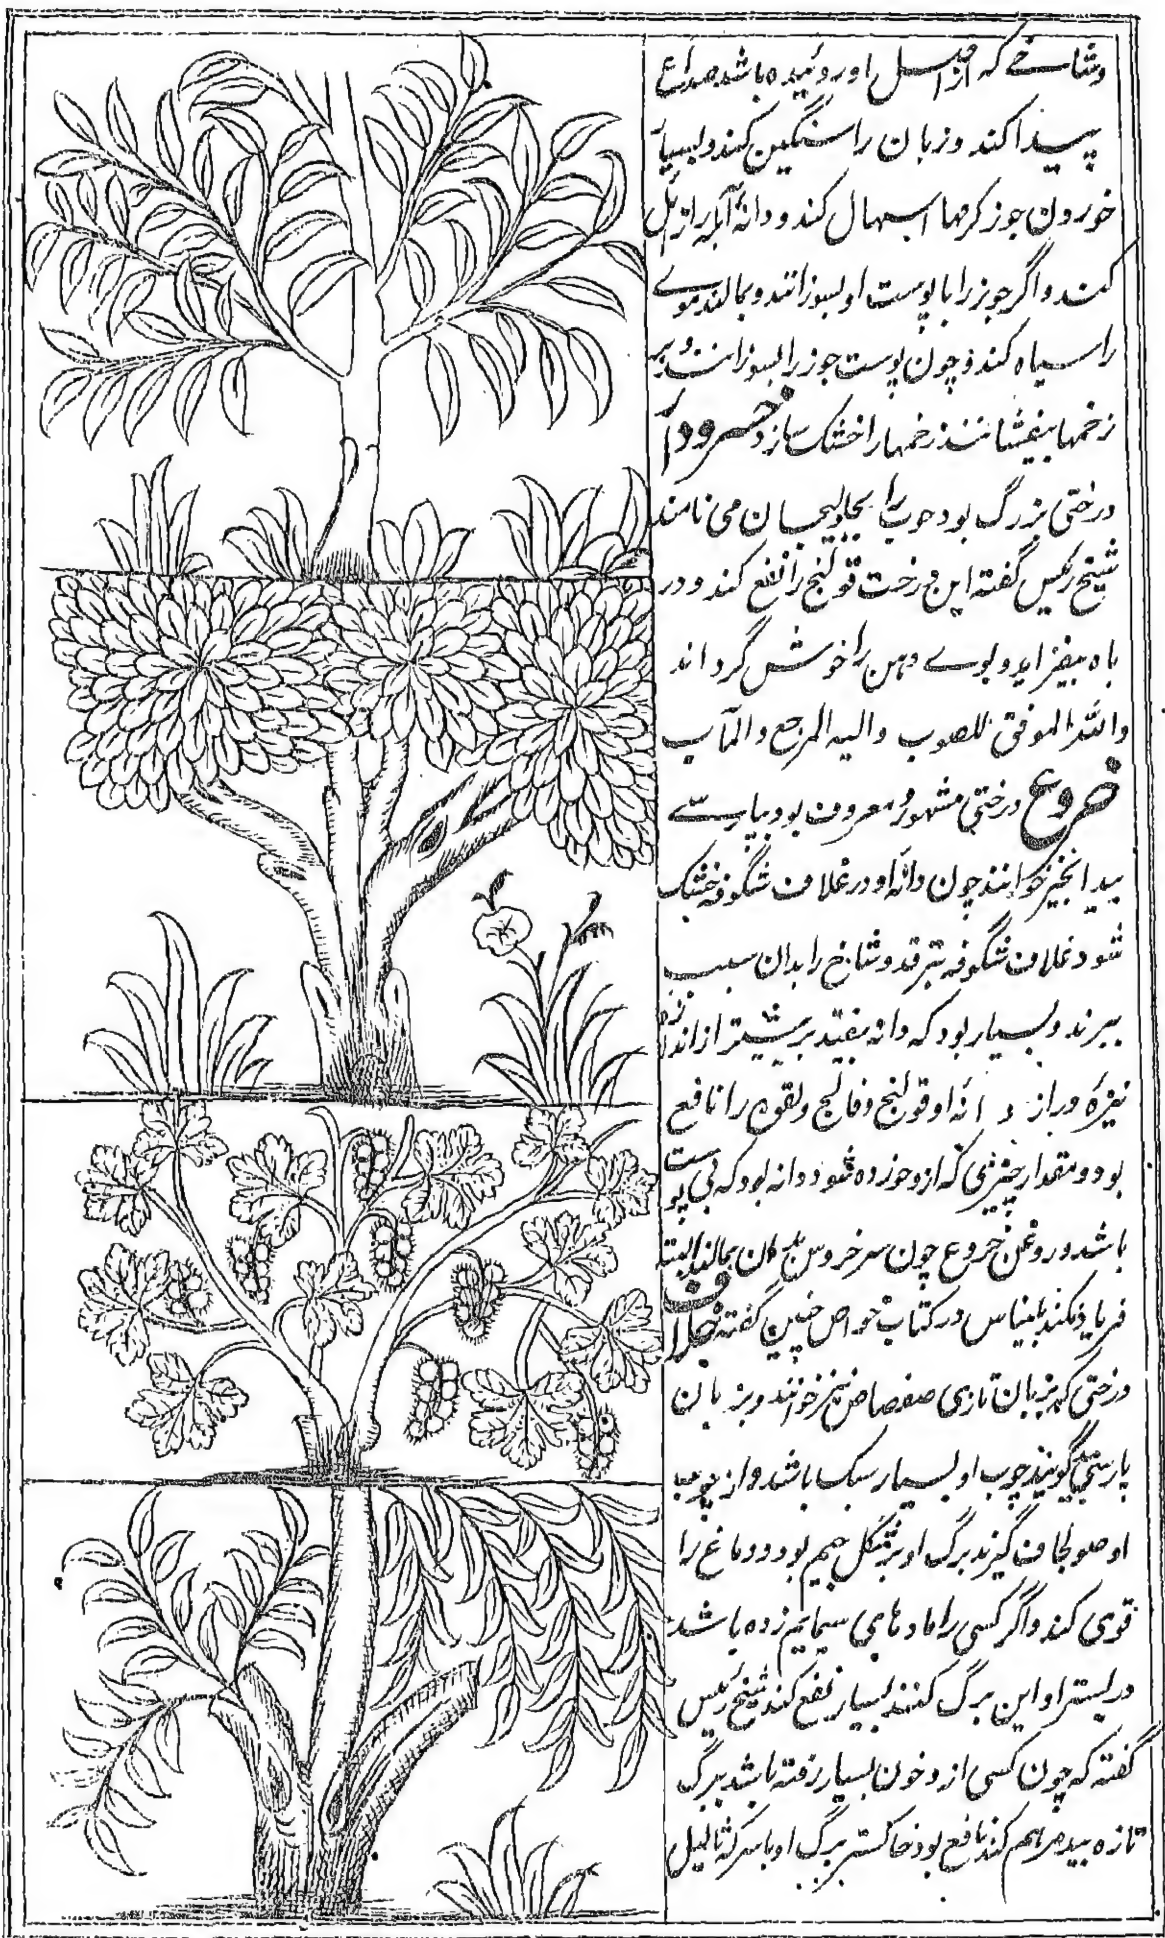 وشاخے که از اصل او روئیده باشد صداع
پیدا کند و زبان را سنگین کند و بسیار
خوردن جوز کرمها اسهال کند و دانهٔ آبله را زائل
کند و اگر جوز را با پوست او بسوزانند و بمالند موے
را سیاه کند و چون پوست جوز را بسوزانند و بر
زخمها بیفشانند زخمها را خشک سازد خسرودار
درختی بزرگ بود چوب را بجاولیخان می نامند
شیخ رئیس گفته این درخت قولنج را نفع کند و در
باه بیفزاید و بوے دهن را خوش گرداند
والله الموفق للصوب والیه المرجع والمآب
خروع درختی مشهور و معروف بود بپارسے
بیدانجیر خوانند چون دانهٔ او در غلاف شگوفه خشک
شود غلاف شگوفه بترقد و شاخ را بدان سبب
ببرند و بسیار بود که دانه بیفتد بر بیشتر از اندازه
نیزهٔ دراز دانهٔ او قولنج و فالج و لقوه را نافع
بود و مقدار چیزی که ازو خورده شود ده دانه بود که بی پوست
باشد و روغن خروع چون سر خروس بدان بمالند البته
فریاد نکند بلیناس در کتاب خواص چنین گفته خلاف
درختی که بزبان تازی صفصاص نیز خوانند و بزبان
پارسی بید گویند چوب او بسیار سبک باشد و از چوب
او صولجان گیرند برگ او بشکل جیم بود و دماغ را
قوی کند و اگر کسی را مادهای سمایم زده باشد
در بستر او این برگ کنند بسیار نفع کند شیخ رئیس
گفته که چون کسی ازو خون بسیار رفته باشد ببرگ
تازه بید مرهم کند نافع بود خاکستر برگ او با سرکه ثالیل